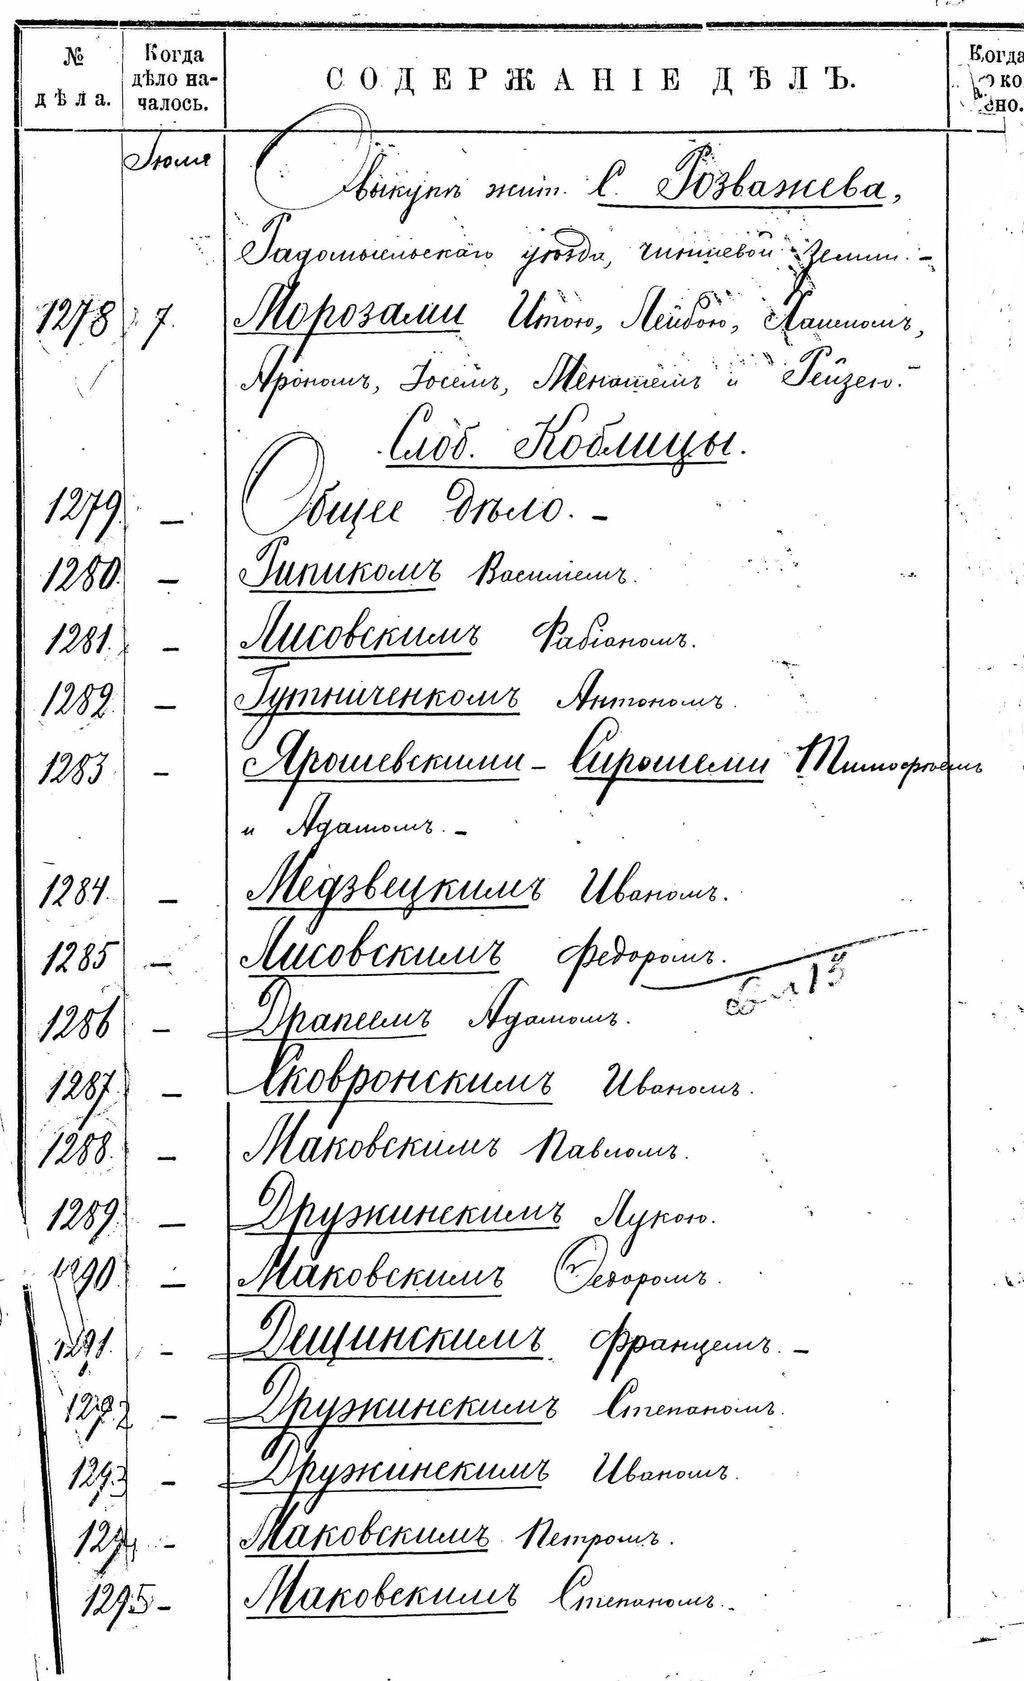 № дѣла. Когда дѣло началось. СОДЕРЖАНІЕ ДѢЛЪ. Когда
Іюля О выкупѣ жит. С. Розважева,
Радомысльскаго уѣзда, чиншевой земли. –
1278 7. Морозами Итою, Лейбою,
Арономъ, Іосемъ, и Рейзею. –
Слоб. Коблицы.
1279 – Общее дѣло. –
1280. – Рипикомъ Василіемъ.
1281. – Лисовскимъ Фабіаномъ.
1282. – Гутниченкомъ Антономъ.
1283 – Ярошевскими – Сирошеми Тимофѣемъ
и Адамомъ. –
1284. – Медзвецкимъ Иваномъ.
1285 – Лисовскимъ Федоромъ.
13
1286 – Драпеемъ Адамомъ.
1287. – Сковронскимъ Иваномъ.
1288. – Маковскимъ Павломъ.
1289. – Дружинскимъ Лукою.
1290. – Маковскимъ Ѳедоромъ.
1291. – Дещинскимъ Францемъ. –
1292 – Дружинскимъ Степаномъ.
1293 – Дружинскимъ Иваномъ.
1294 – Маковскимъ Петромъ.
1295 – Маковскимъ Степаномъ. –